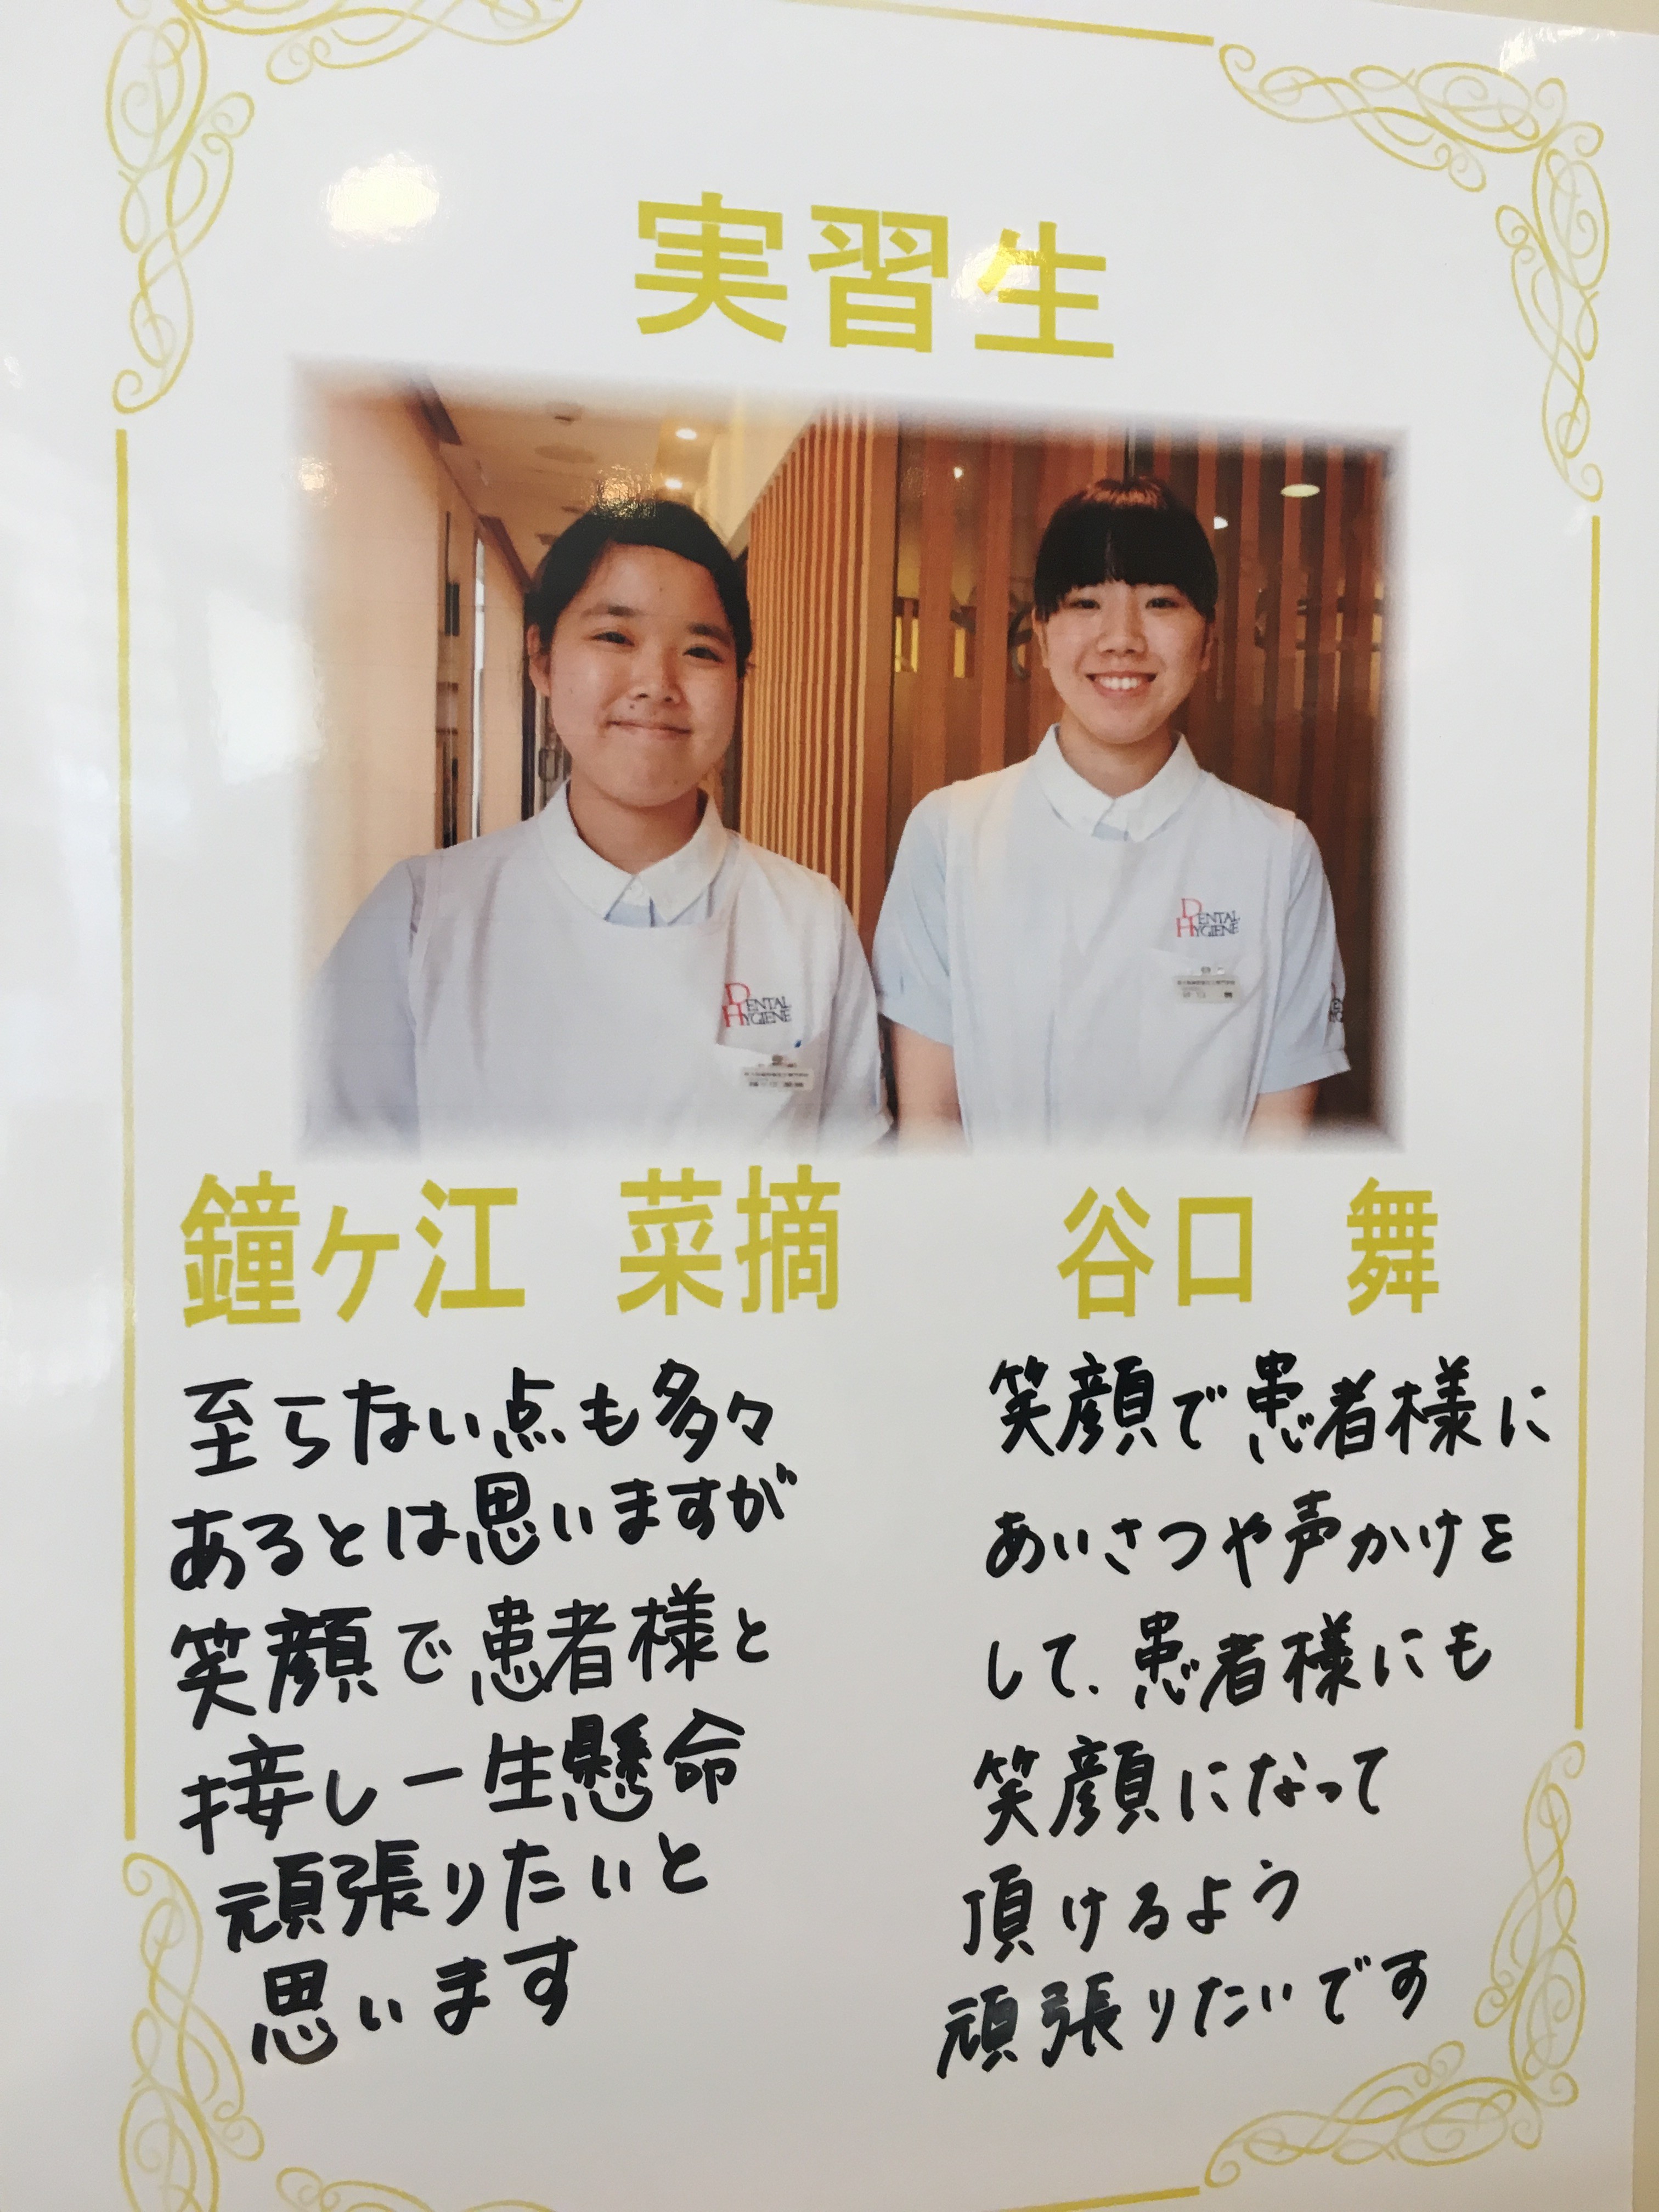 実習生
DENTAL
HYGIENE
DENTAL
HYGIENE
鐘ヶ江 菜摘
至らない点も多々
あるとは思いますが
笑顔で患者様と
接し一生懸命
頑張りたいと
思います
谷口 舞
笑顔で患者様に
あいさつや声かけを
して、患者様にも
笑顔になって
頂けるよう
頑張りたいです